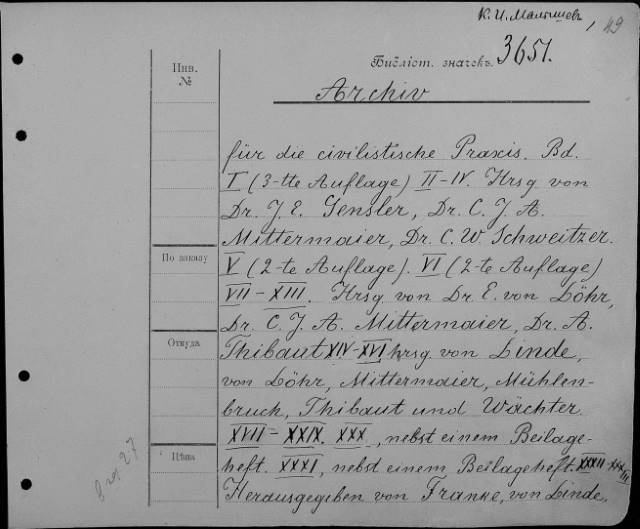 К. И. Малышевъ
49
Библіот. значекъ. 3651.
Инв.
№
Archiv
für die civilistische Praxis. Bd.
I (3-tte Auflage) II-IV. Hrsg von
Dr. J. E. Gensler, Dr. C. J. A.
Mittermaier, Dr. C. W. Schweitzer.
По заказу
V (2-te Auflage). VI (2-te Auflage)
VII-XIII. Hrsg. von Dr. E. von Löhr,
Dr. C. J. A. Mittermaier, Dr. A.
Откуда
Thibaut XIV-XVI hrsg. von Linde,
von Löhr, Mittermaier, Mühlen-
bruch, Thibaut und Wächter.
XVII-XXIX. XXX, nebst einem Beilage-
Цѣна
heft. XXXI, nebst einem Beilageheft. XXXII XXXIII
Herausgegeben von Franke, von Linde,